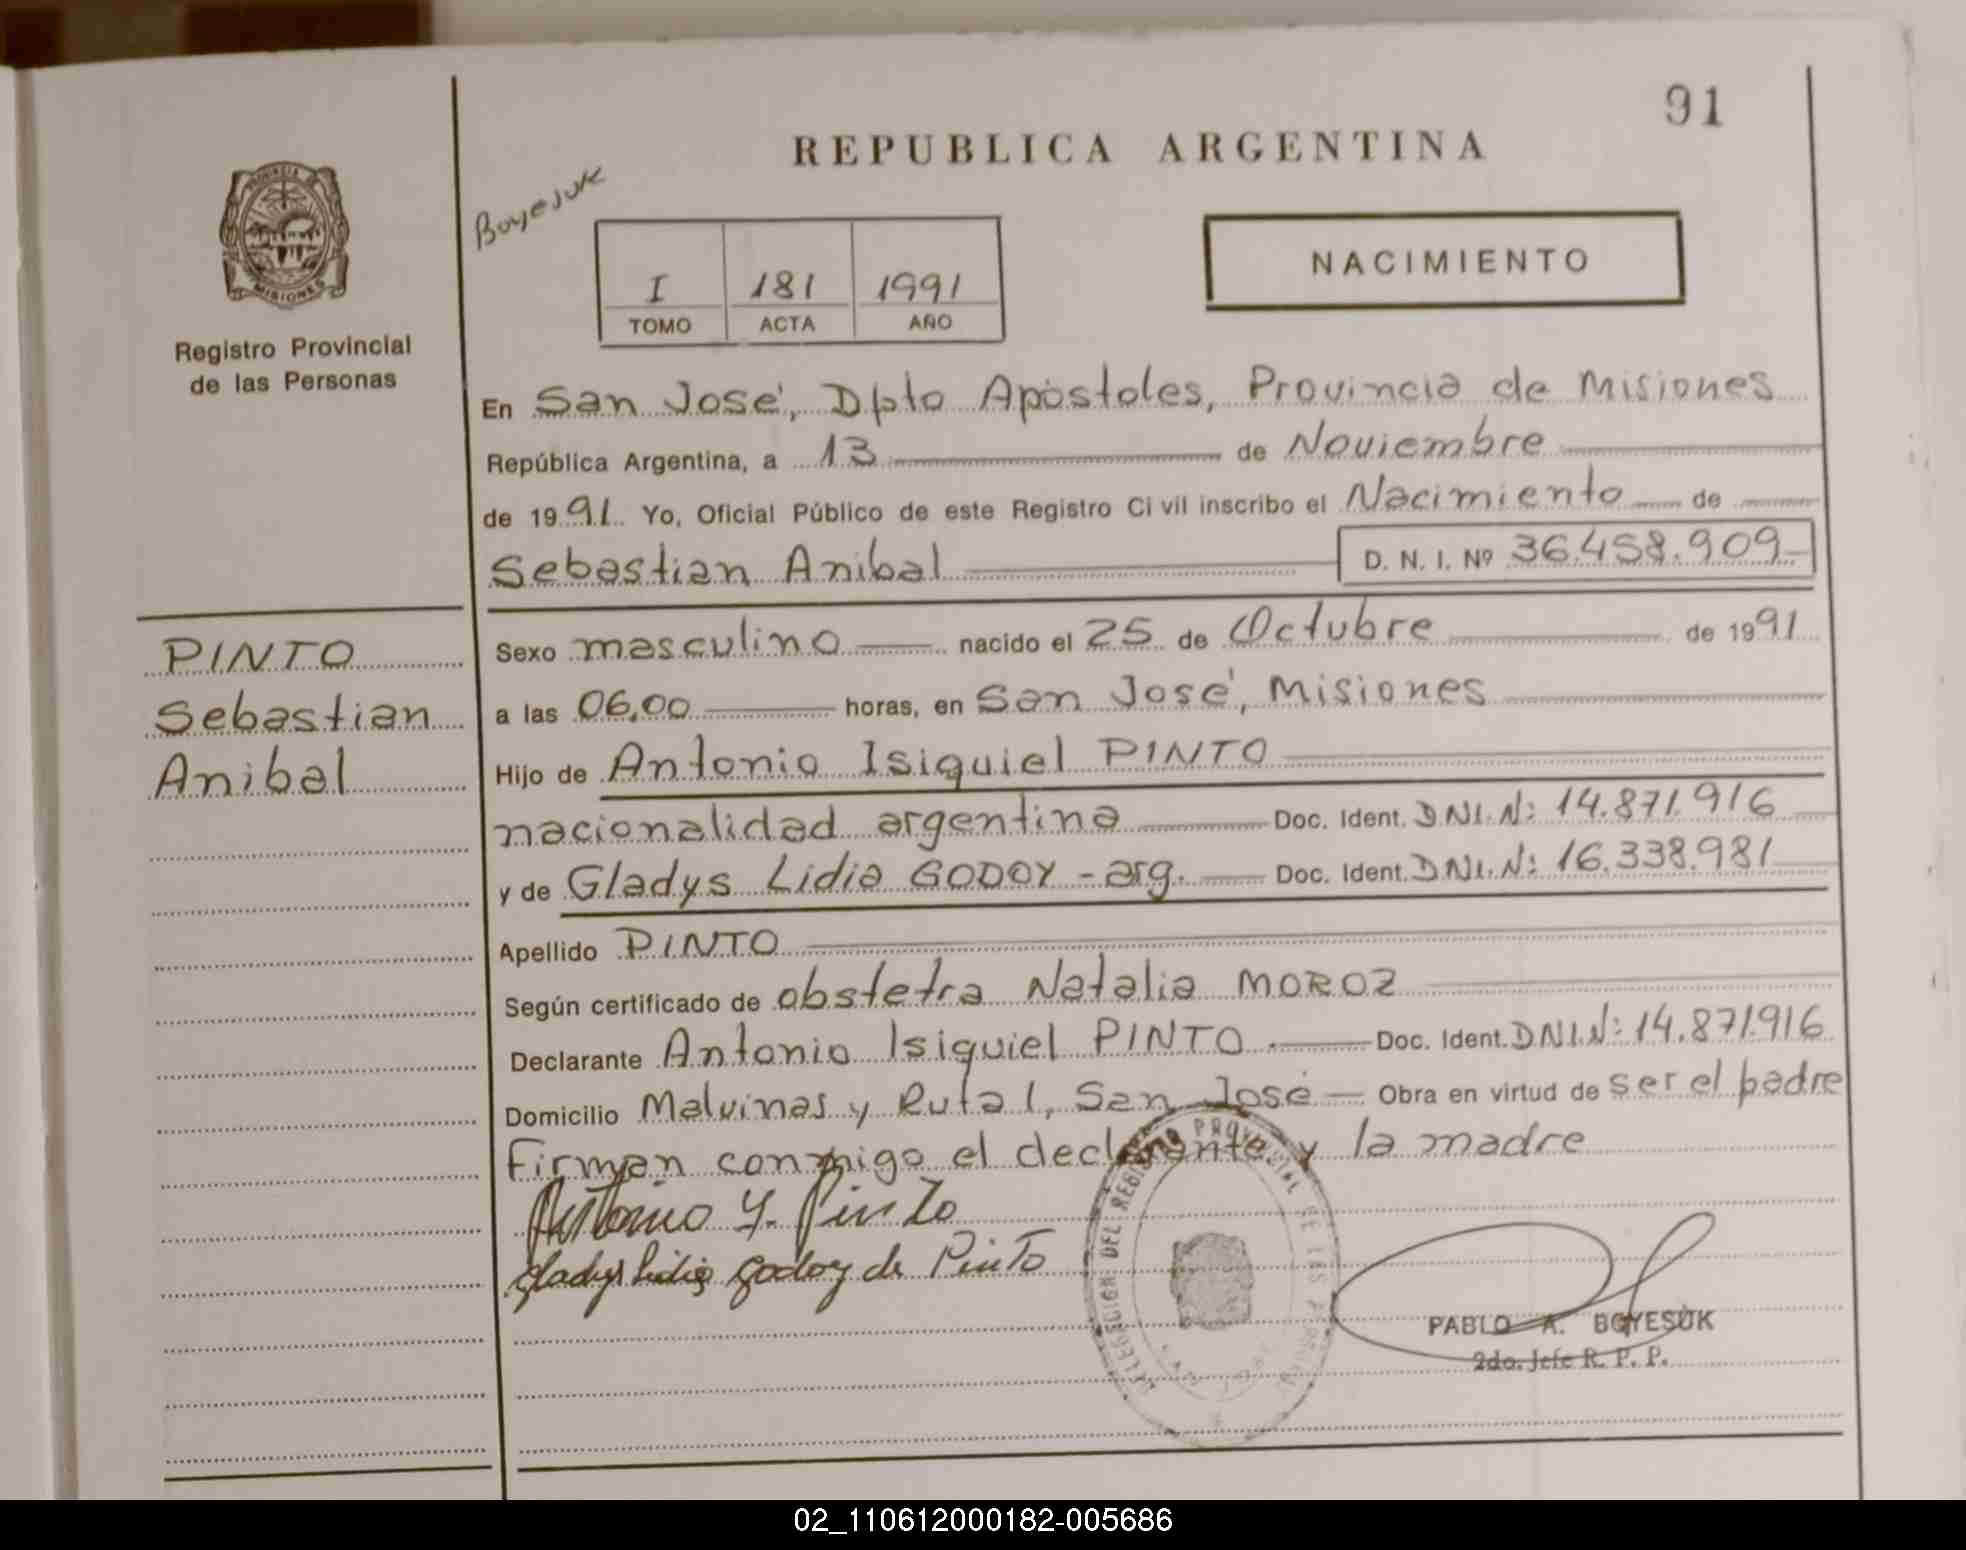 91
REPUBLICA ARGENTINA
Boyesuk
PROVINCIA DE
MISIONES
Registro Provincial
de las Personas
I 181 1991
TOMO ACTA AÑO
NACIMIENTO
En San José, Dpto Apóstoles, Provincia de Misiones
República Argentina, a 13 de Noviembre
de 1991 Yo, Oficial Público de este Registro Ci vil inscribo el Nacimiento de
Sebastian Anibal D. N. I. Nº 36.458.909
PINTO
Sebastian
Anibal
Sexo masculino nacido el 25 de Octubre de 1991
a las 06,00 horas, en San José, Misiones
Hijo de Antonio Isiquiel PINTO
nacionalidad argentina Doc. Ident. DNI.N: 14.871.916
y de Gladys Lidia GODOY - arg. Doc. Ident. DNI.N: 16.338.981
Apellido PINTO
Según certificado de obstetra Natalia MOROZ
Declarante Antonio Isiquiel PINTO. Doc. Ident. DNI.N: 14.871.916
Domicilio Malvinas y Ruta 1, San José - Obra en virtud de ser el padre
Firman conmigo el declarante y la madre
Antonio Y. Pinto
Gladys Lidia Godoy de Pinto
DELEGACION DEL REGISTRO PROVINCIAL DE LAS PERSONAS
PABLO A. BOYESUK
2do. Jefe R. P. P.
02_110612000182-005686